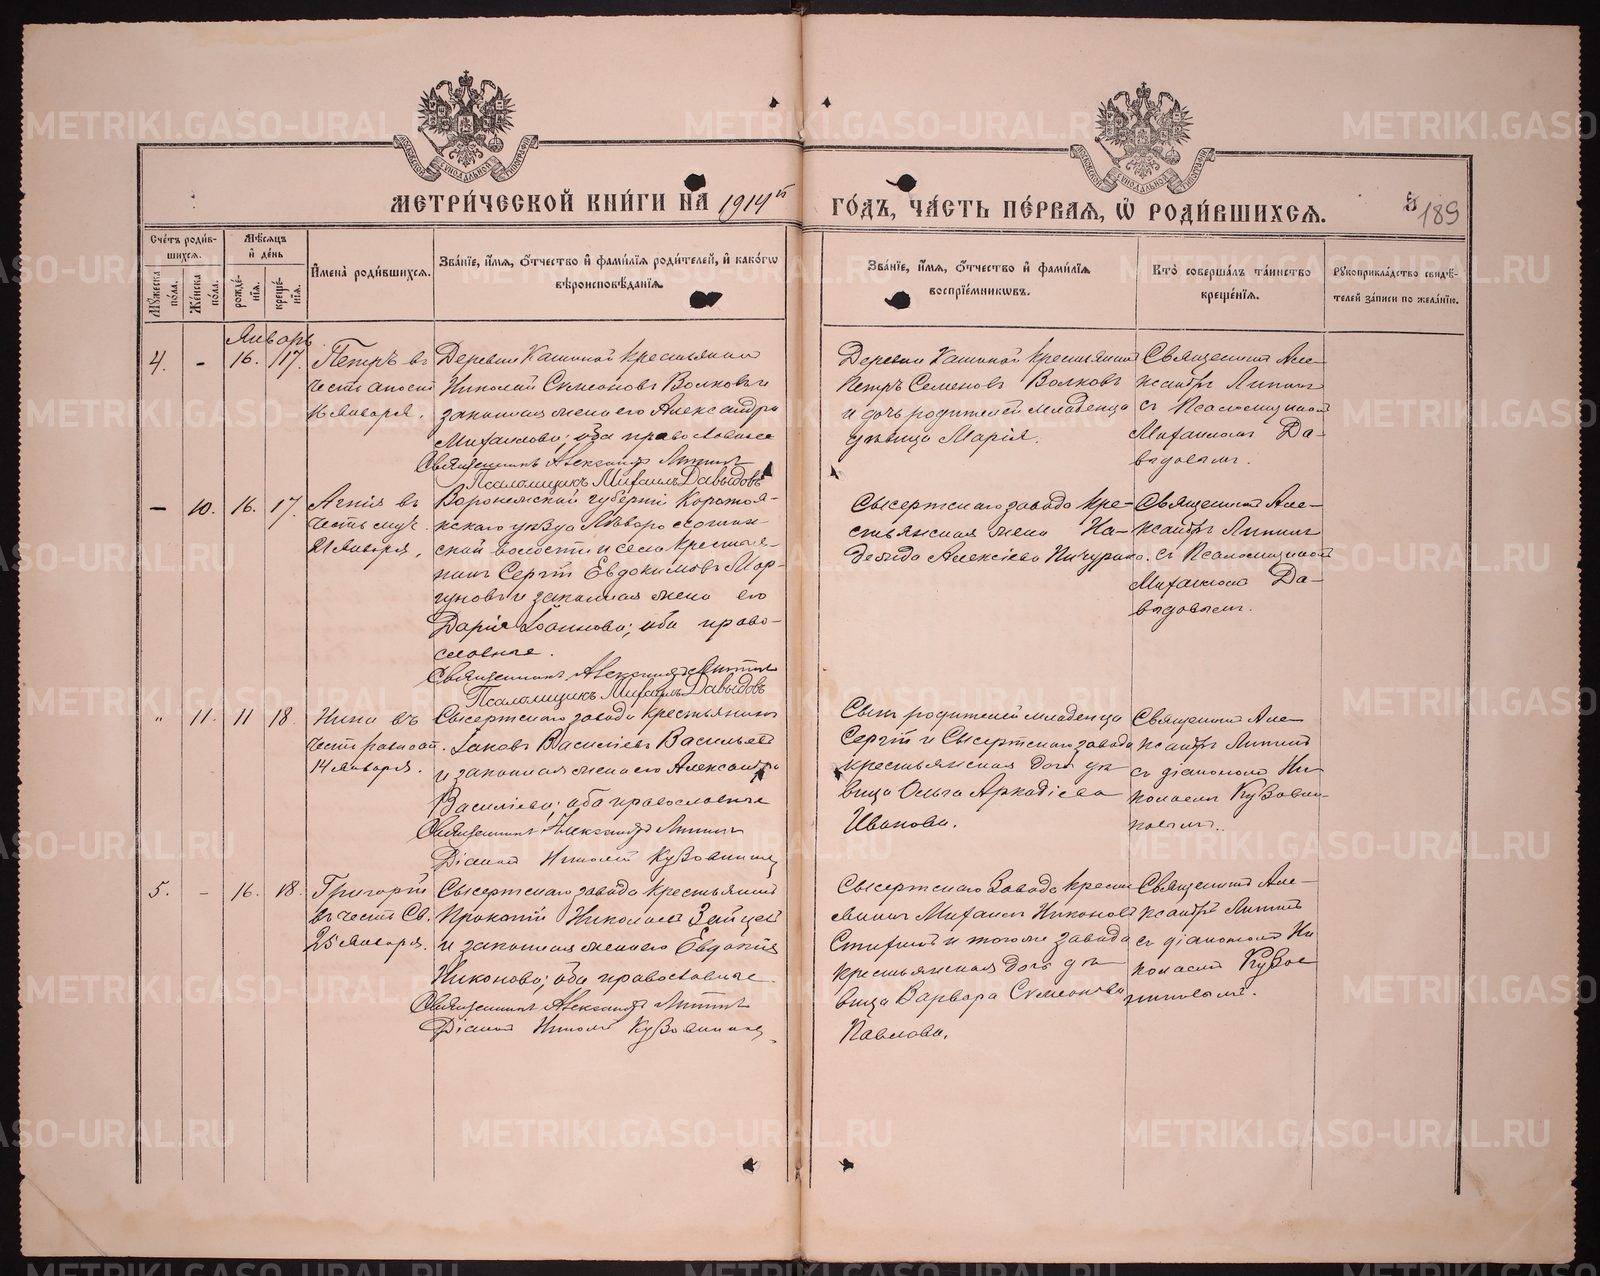 МЕТРИ́ЧЕСКОЙ КНИ́ГИ НА 1914й ГО́ДЪ, ЧА́СТЬ ПЕ́РВАЯ, Ѿ РОДИ́ВШИХСЯ.
189
Сче́тъ роди́в-
шихся.
Мѣ́сяцъ
и де́нь
Мꙋ́жеска
по́ла.
Же́нска
по́ла.
рожде́-
нїя.
креще́-
нїя.
И҆мена̀ роди́вшихся.
Зва́нїе, и҆́мя, ѻ҆́тчество и҆ фами́лїя роди́телей, и҆ како́гѡ
вѣроисповѣ́данїя.
Зва́нїе, и҆́мя, ѻ҆́тчество и҆ фами́лїя
воспрїе́мникѡвъ.
Кто̀ соверша́лъ та́инство
креще́нїя.
Рꙋкоприкла́дство свидѣ́-
телей за́писи по жела́нїю.
Январь.
4. - 16. 17.
Петръ въ
честь апост
16 января.
Деревни Кашиной крестьянинъ
Николай Сѵмеоновъ Волковъ и
законная жена его Александра
Михаилова; оба православные
Священникъ Александръ
Псаломщикъ Михаилъ Давыдовъ
Деревни Кашиной крестьянинъ
Петръ Семеновъ Волковъ
и дочь родителей младенца
дѣвица Марія.
Священникъ Але-
ксандръ
съ Псаломщикомъ
Михаиломъ Да-
выдовымъ.
— 10. 16. 17.
Агнія въ
честь муч.
21 января.
Воронежской губерніи Коротоя-
кскаго уѣзда
ской волости и села крестья-
нинъ Сергій Евдокимовъ Мор-
гуновъ и законная жена его
Дарія Іоаннова; оба право-
славные.
Священникъ Александръ
Псаломщикъ Михаилъ Давыдовъ
Сысертскаго завода кре-
стьянская жена На-
дежда Алексіева Пичурина.
Священникъ Але-
ксандръ
съ Псаломщикомъ
Михаиломъ Да-
выдовымъ.
" 11. 11 18.
Нина въ
честь равноап.
14 января.
Сысертскаго завода крестьянинъ
Іаковъ Василіевъ Васильевъ
и законная жена его Александра
Василіева; оба православные
Священникъ Александръ
Діаконъ Николай Кузовниковъ
Сынъ родителей младенца
Сергій и Сысертскаго завода
крестьянская дочь дѣ-
вица Ольга Аркадіева
Иванова.
Священникъ Але-
ксандръ
съ діакономъ Ни-
колаемъ Кузовни-
ковымъ.
5. - 16. 18.
Григорій
въ честь Св.
25 января.
Сысертскаго завода крестьянинъ
Прокопій Николаевъ Зайцевъ
и законная жена его Евдокія
Никонова; оба православные.
Священникъ Александръ
Діаконъ Николай Кузовниковъ
Сысертскаго завода крест
янинъ Михаилъ Никоновъ
и того же завода
крестьянская дочь дѣ-
вица Варвара Сѵмеонова
Павлова.
Священникъ Але-
ксандръ
съ діакономъ Ни
колаемъ Кузов
никовымъ.
METRIKI.GASO-URAL.RU